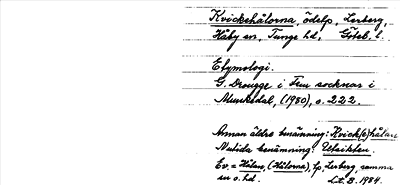 Kvickehålorna, ödelp, Lerberg,
Håby sn, Tunge hd, Göteb. l.
Etymologi.
G. Drougge i Fem socknar i
Munkedal, (1980), s. 222.
Annan äldre benämning: Kvick(e)hålan
Nutida benämning: Utsikten.
Ev. = Hålan, (Hålorna), lp, Lerberg, samma
sn o. hd. L.t. B. 1984.